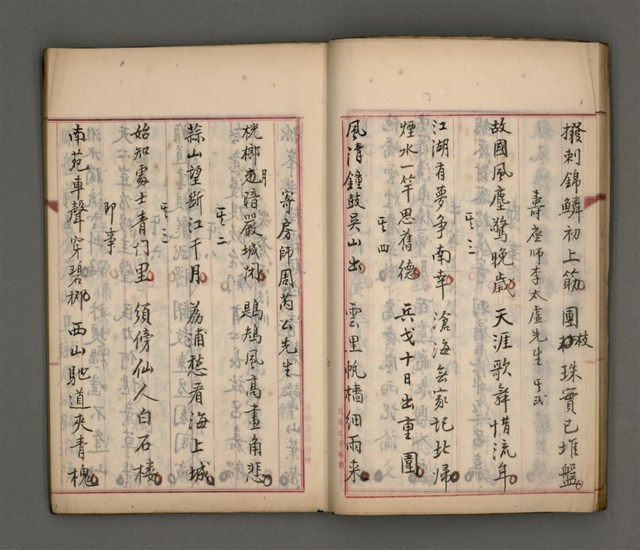 撥刺錦鱗初上筋 團枝珠實已堆盤
壽座師李太虛先生 其二
故國風塵驚晚歲 天涯歌舞惜流年
其三
江湖有夢爭南幸 滄海無家記北歸
煙水一竿思舊德 兵戈十日出重圍
其四
風清鐘鼓吳山出 雲里帆檣細雨来
寄房師周芮公先生
桄榔月暗嚴城閉 鷓鴣風高畫角悲
其二
蒜山望斷江千月 荔浦愁看海上城
其三
始知處士青门里 須傍仙人白石楼
即事
南苑車聲穿碧柳 西山馳道夾青槐